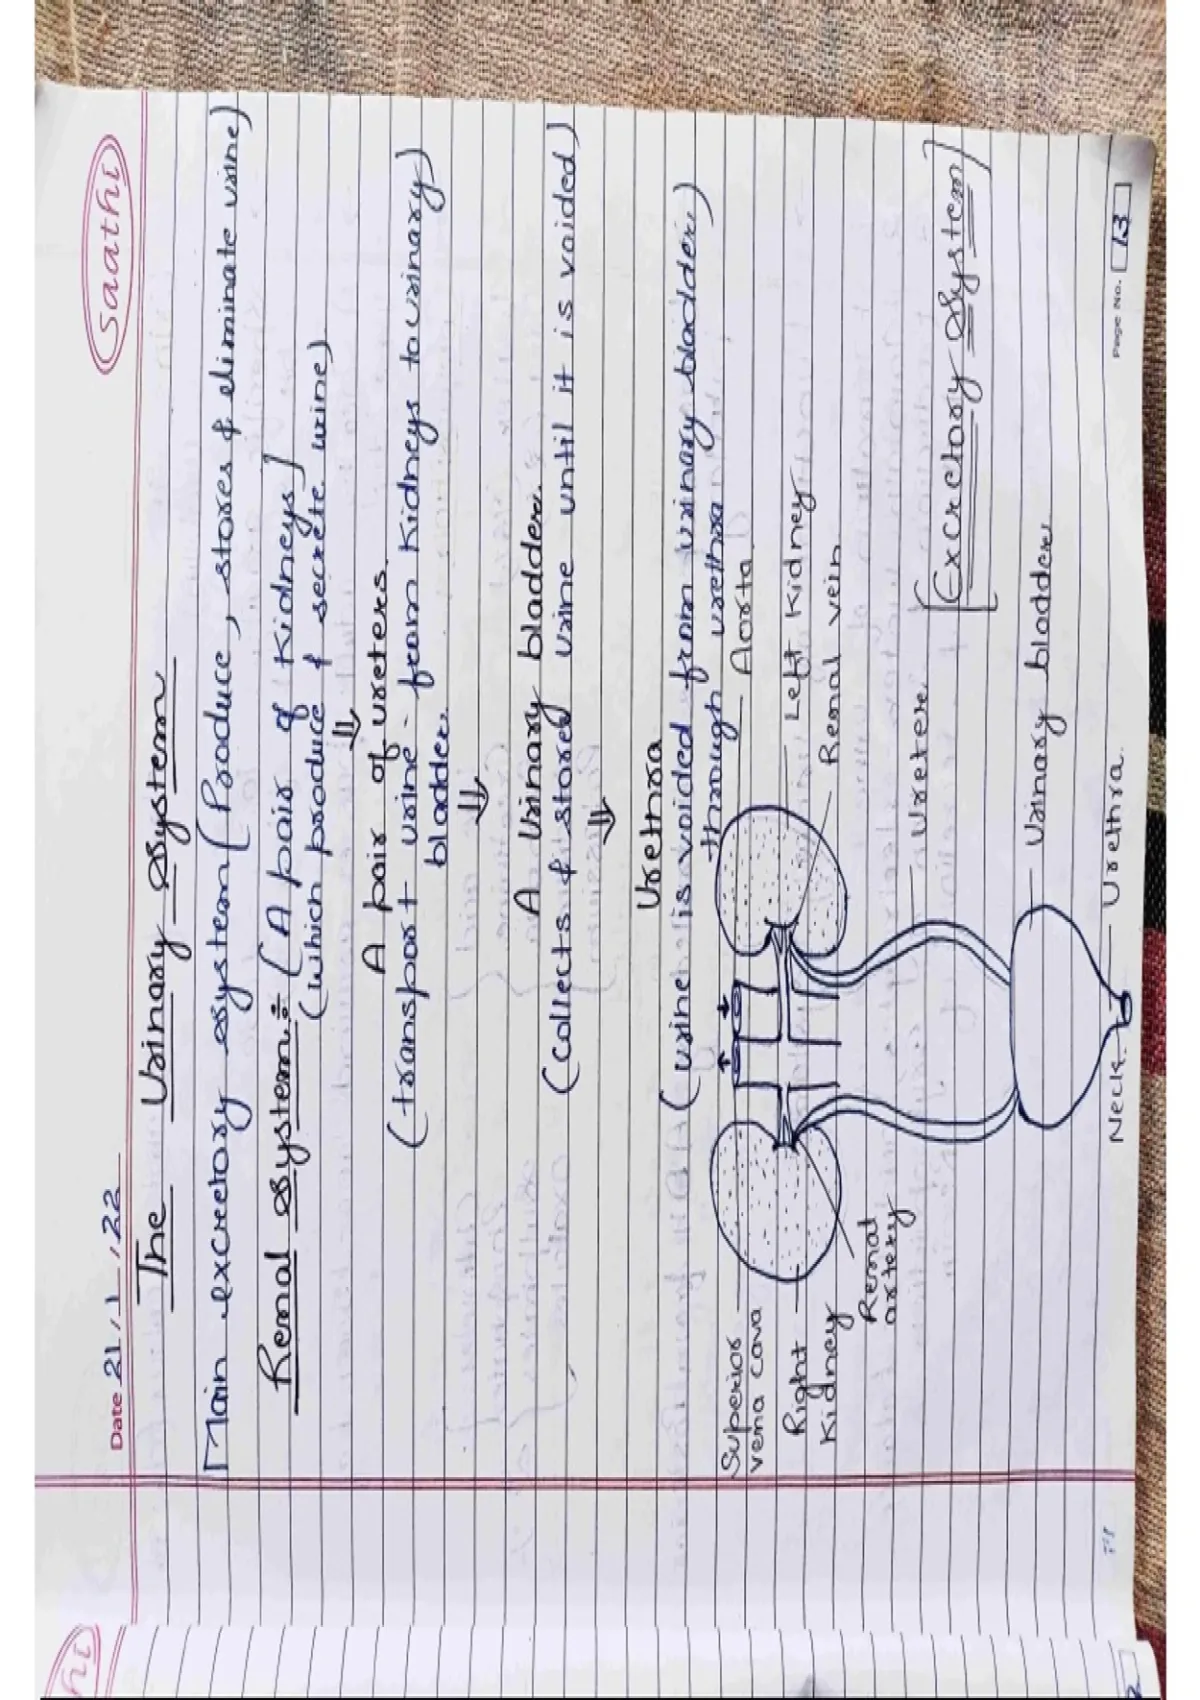 Saathi
Date 21/1/22
The Urinary System
Main excretory system (Produce, stores & eliminate urine)
Renal System ÷ (A pair of Kidneys]
(which produce & secrete urine)
⇓
A pair of ureters.
(transport urine - from kidneys to urinary
bladder.
⇓
A Urinary bladder.
(collects & stores urine until it is voided)
⇓
Urethra
(urine is voided from urinary bladder)
through urethra
Aorta
Superior
vena cava
Left Kidney
Right
Kidney
Renal vein
Renal
artery
Ureter
[Excretory System]
Urinary bladder
Neck
Urethra
Page No. 13